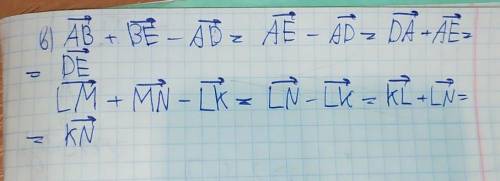 в) A͞B⃗ + B͞E⃗ − A͞D⃗ = A͞E⃗ − A͞D⃗ = D͞A⃗ + A͞E⃗ =
= D͞E⃗
L͞M⃗ + M͞N⃗ − L͞K⃗ = L͞N⃗ − L͞K⃗ = K͞L⃗ + L͞N⃗ =
= K͞N⃗